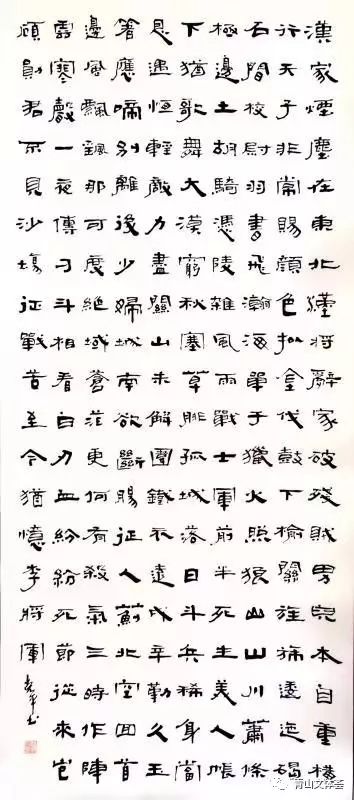 漢家煙塵在東北漢將辭家破殘賊男兒本自重橫
行天子非常賜顏色摐金伐鼓下榆關旌旆逶迤碣
石間校尉羽書飛瀚海單于獵火照狼山山川蕭條
極邊土胡騎憑陵雜風雨戰士軍前半死生美人帳
下猶歌舞大漠窮秋塞草腓孤城落日斗兵稀身當
恩遇恒輕敵力盡關山未解圍鐵衣遠戍辛勤久玉
箸應啼別離後少婦城南欲斷腸征人薊北空回首
邊風飄颻那可度絕域蒼茫更何有殺氣三時作陣
雲寒聲一夜傳刁斗相看白刃血紛紛死節從來豈
顧勳君不見沙場征戰苦至今猶憶李將軍
青山文体荟